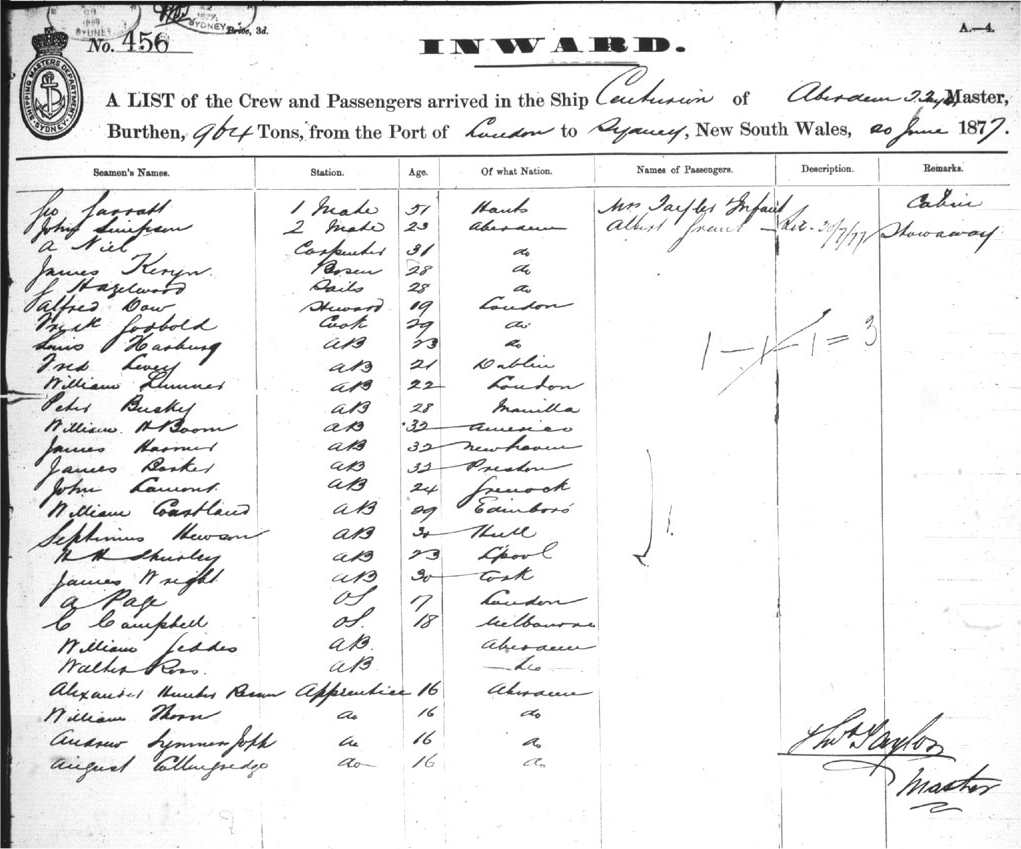 No. 456 Price, 3d. A.—4.
INWARD.
SHIPPING MASTERS DEPARTMENT SYDNEY
A LIST of the Crew and Passengers arrived in the Ship Centurion of Aberdeen Master,
Burthen, 964 Tons, from the Port of London to Sydney, New South Wales, 20 June 1877.
Seamen's Names. Station. Age. Of what Nation. Names of Passengers. Description. Remarks.
Geo Garratt 1 Mate 51 Hants Mrs Tayler Infant Cabin
John Simpson 2 Mate 23 Aberdeen Albert Grant 20/7/77 Stowaway
A Niel Carpenter 31 do
James Bosen 28 do
J Hazelwood Sails 28 do
Alfred Dow Steward 19 London
Godbold Cook 29 do
Louis Harburg AB 23 do
1 – 1 – 1 = 3
Fred Levey AB 21 Dublin
William AB 22 London
Peter Busky AB 28 Manilla
William H Boom AB 32 America
James Harmer AB 32 Newhaven
James Barker AB 32 Preston
John Lamont AB 24 Greenock
William Coastland AB 29 Edinboro
Septimus Hewson AB 30 Hull
H H Shurley AB 23 Lpool
James Wright AB 30 Cork
A Page OS 17 London
C Campbell OS 18 Melbourne
William Geddes AB Aberdeen
Walter Ross. AB do
Alexander Hunter Apprentice 16 Aberdeen
William Thorn do 16 do
Andrew do 16 do
August Collingredge do 16 do
Thos Taylor
Master